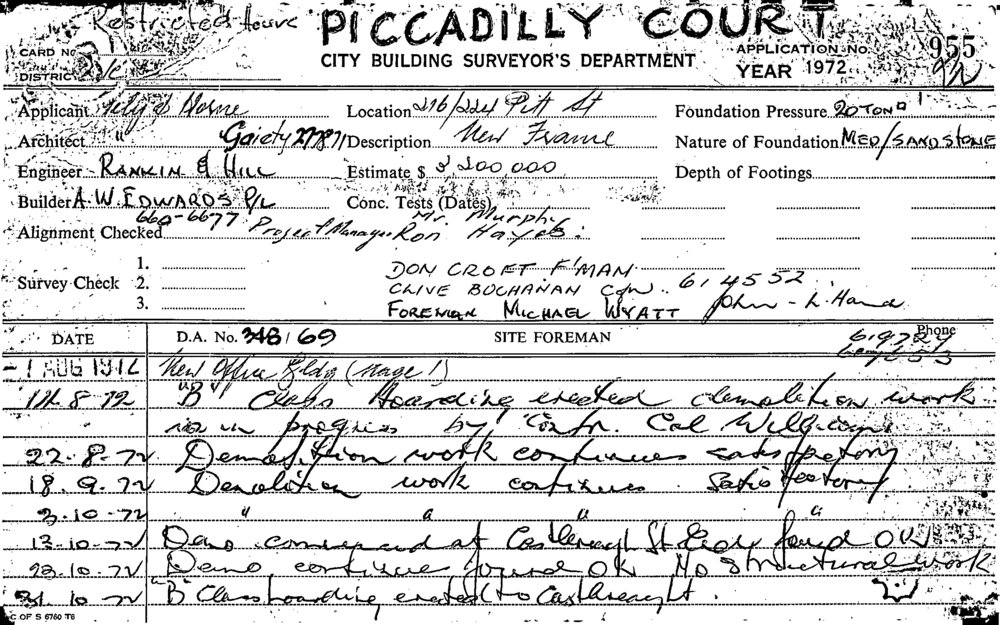 Restricted House PICCADILLY COURT
CARD No
DISTRICT
CITY BUILDING SURVEYOR'S DEPARTMENT
APPLICATION No. 955
YEAR 1972
Applicant
Location 216/224 Pitt St
Foundation Pressure 20 TON
Architect " Gaiety 27871
Description New Frame
Nature of Foundation MED/SANDSTONE
Engineer RANKIN & HILL
Estimate $ 3,200,000
Depth of Footings
Builder A.W. EDWARDS P/L
Conc. Tests (Dates)
660-6677 Mr. Murphy
Alignment Checked Project Manager Ron Hayes.
1.
Survey Check 2.
3.
DON CROFT F'MAN
CLIVE BUCHANAN C.O.W. 614552
FOREMAN MICHAEL WYATT John L. Hand
DATE D.A. No. 348/69 SITE FOREMAN Phone
619729
-1 AUG 1972 New Office Bldg (stage 1)
8-72 "B" Class Hoarding erected demolition work
is in progress by Contr. Cal Williams
22.8.72 Demolition work continues satisfactory
18.9.72 Demolition work continues. Satisfactory
3.10.72 " " " "
13.10.72 Demo commenced at Castlereagh St. Side found OK
23.10.72 Demo continue found OK No structural work
31.10.72 "B" Class hoarding erected to Castlereagh.
C OF S 6760 T6